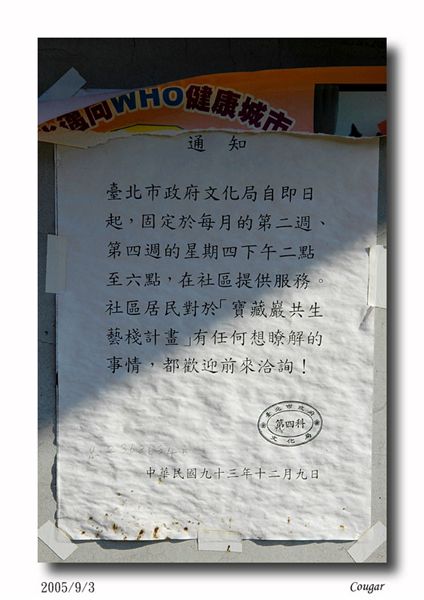 邁向WHO健康城市
通知
臺北市政府文化局自即日
起，固定於每月的第二週、
第四週的星期四下午二點
至六點，在社區提供服務。
社區居民對於「寶藏巖共生
藝棧計畫」有任何想瞭解的
事情，都歡迎前來洽詢！
臺北市政府
第四科
文化局
中華民國九十三年十二月九日
2005/9/3
Cougar